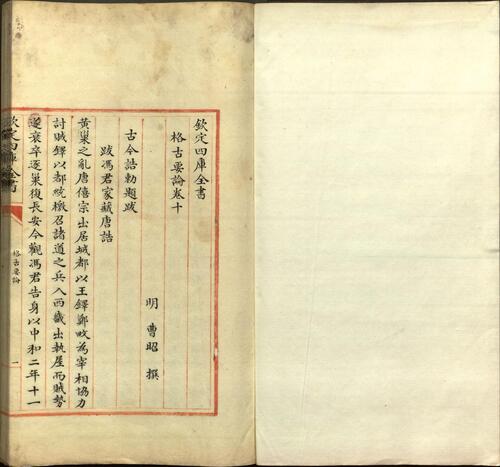 欽定四庫全書
格古要論卷十
明 曹昭 撰
古今誥勅題跋
跋馮君家藏唐誥
黃巢之亂唐僖宗出居城都以王鐸鄭畋為宰相協力
討賊鐸以都統檄召諸道之兵入西畿出執厔而賊勢
遂衰卒逐巢復長安今觀馮君告身以中和二年十一
欽定四庫全書
格古要論
一